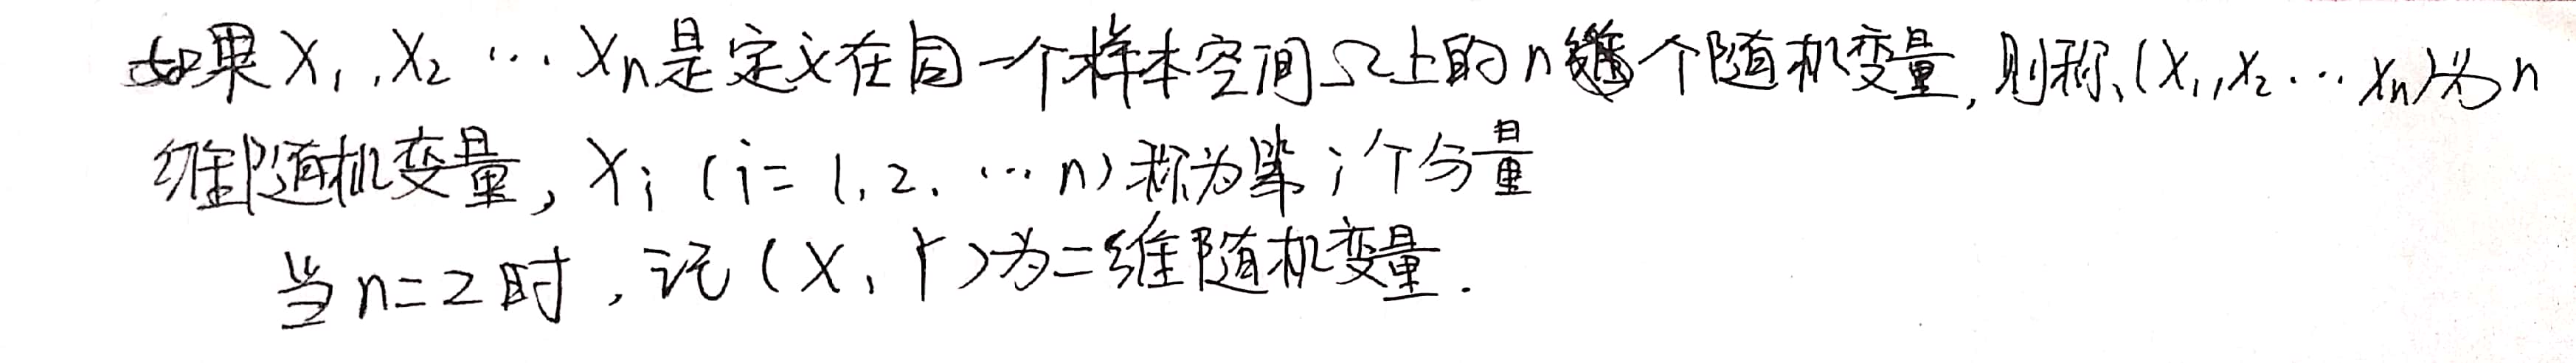 如果X₁,X₂ … Xₙ是定义在同一个样本空间Ω上的n个随机变量,则称(X₁,X₂…Xₙ)为n
维随机变量,Xᵢ(i=1,2,…n)称为第i个分量
当n=2时,记(X,Y)为二维随机变量.